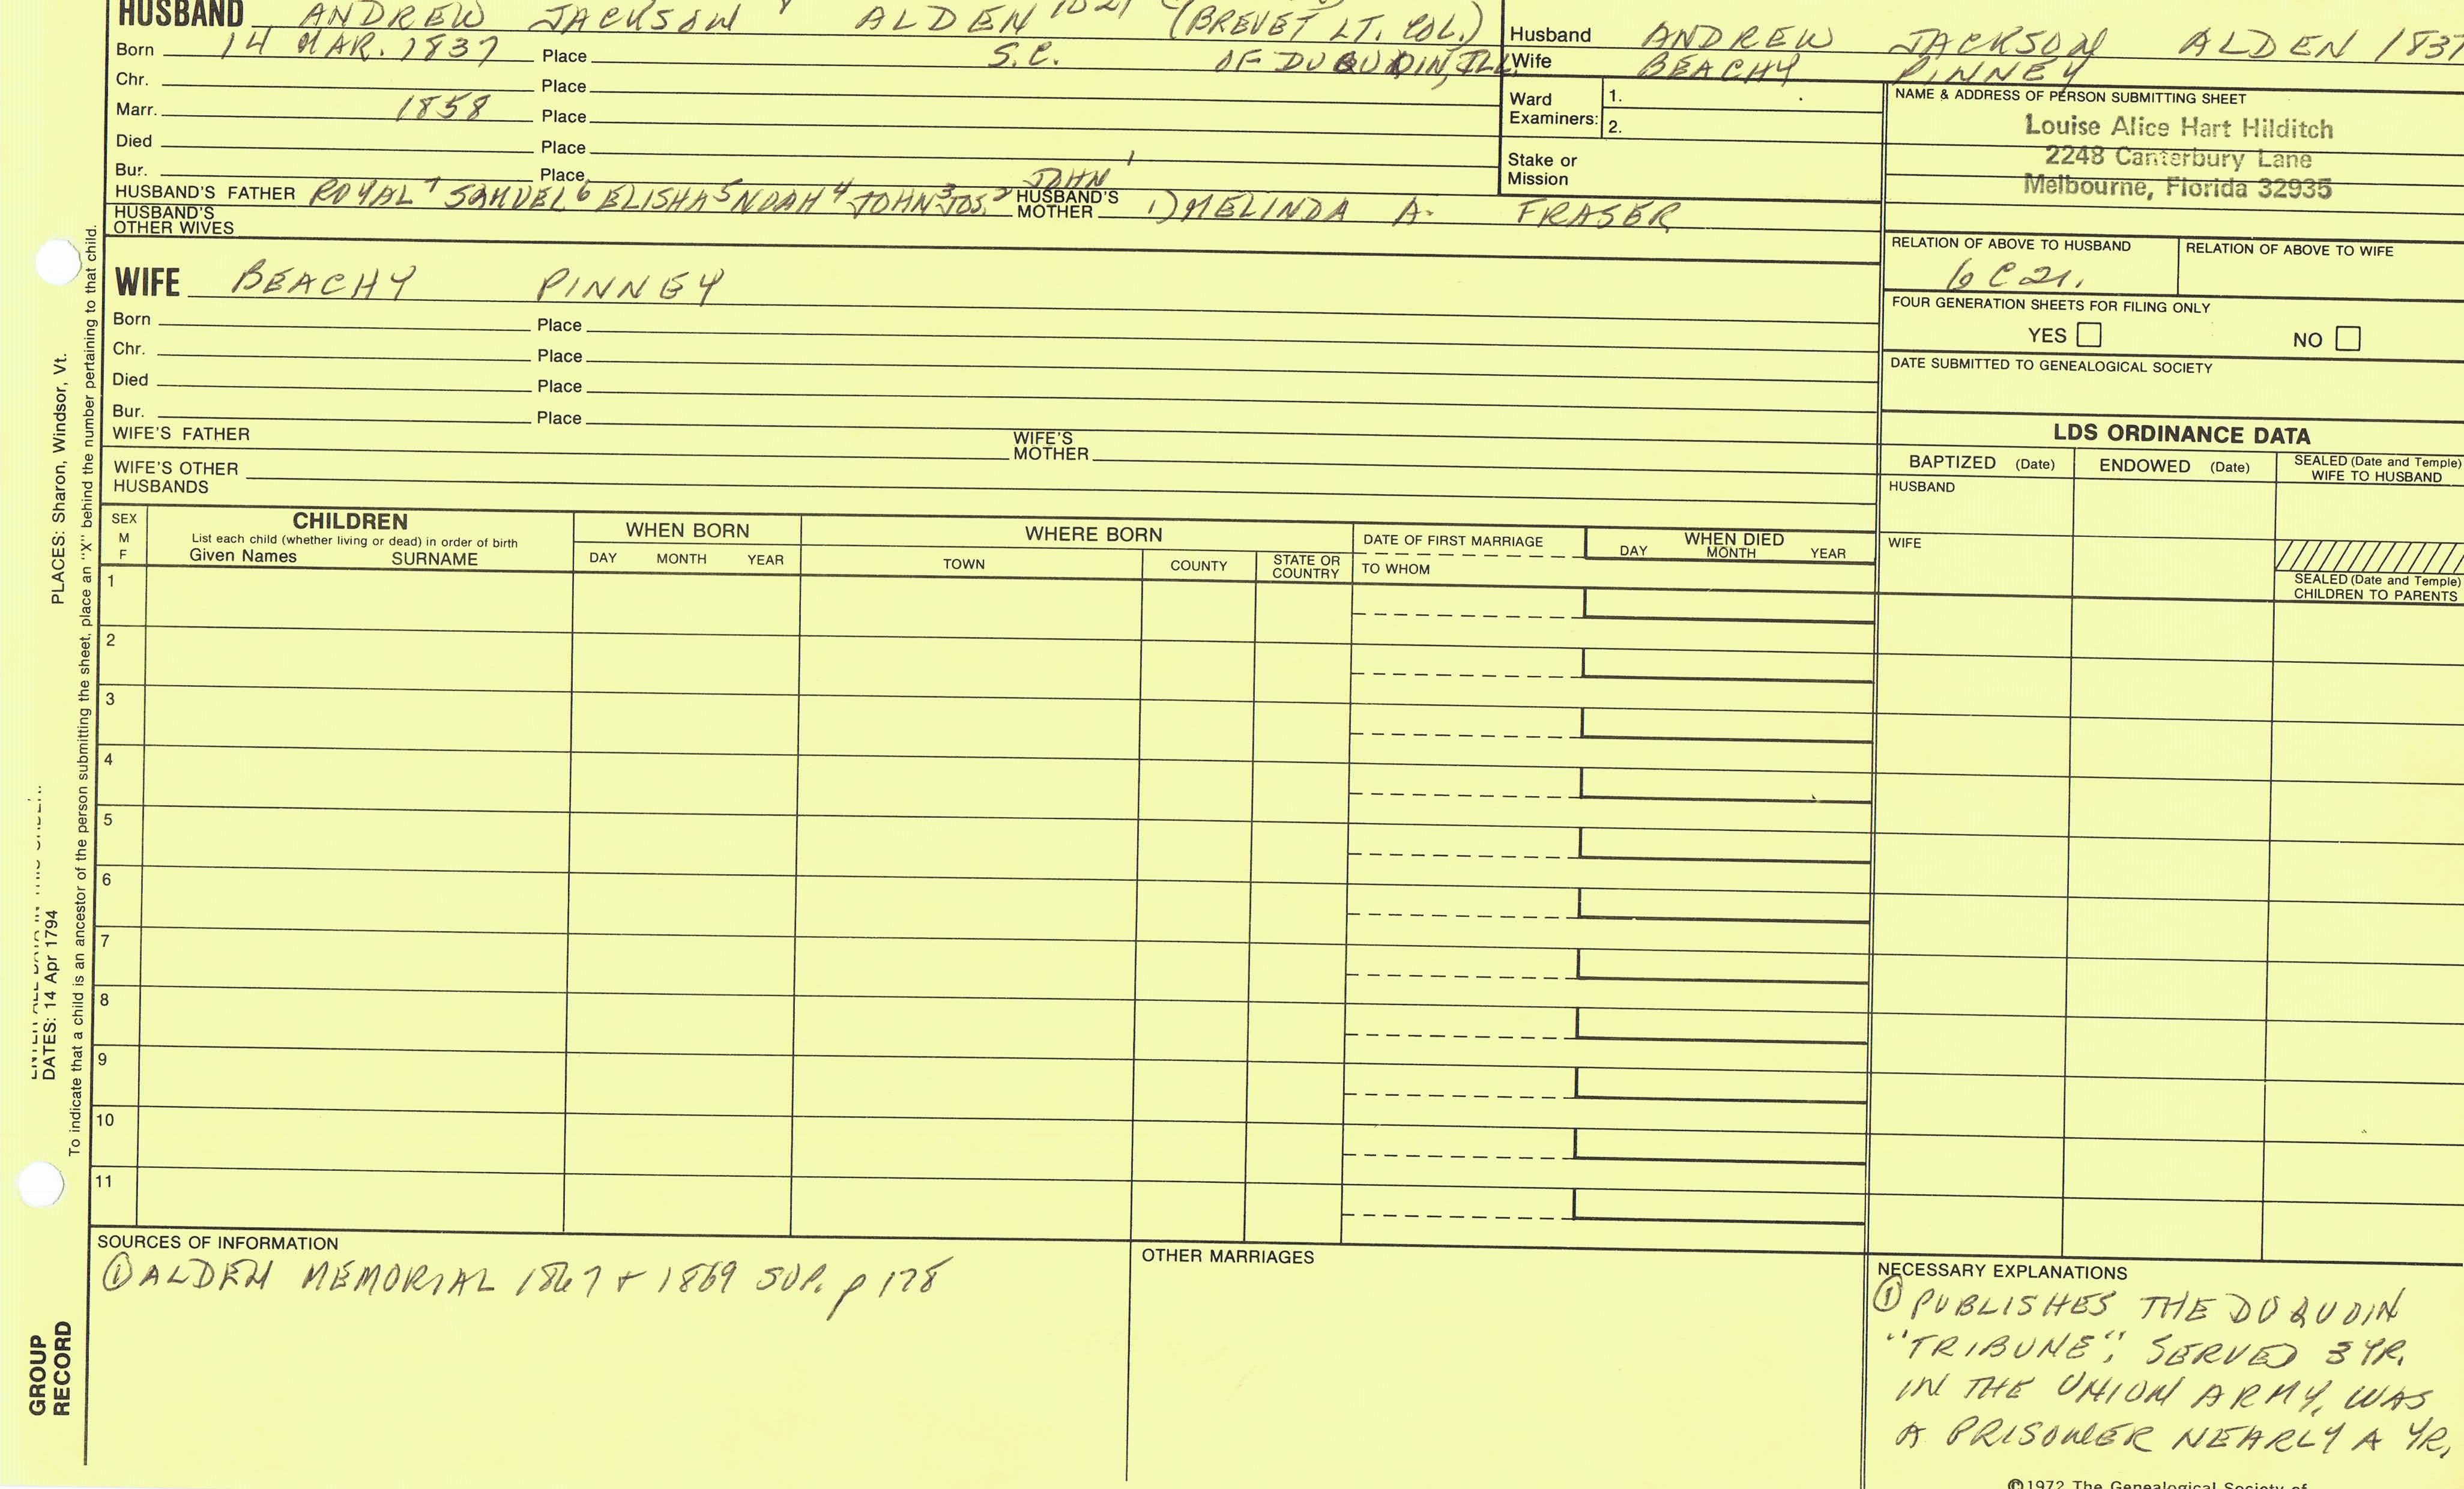 HUSBAND ANDREW JACKSON ALDEN (BREVET LT. COL.)
Born 14 MAR. 1837 Place S.C. OF DUQUOIN, ILL.
Chr. Place
Marr. 1858 Place
Died Place
Bur. Place
HUSBAND'S FATHER ROYAL 7 SAMUEL 6 ELISHA 5 NOAH 4 JOHN 3 JOS. 2 JOHN 1 HUSBAND'S MOTHER 1) MELINDA A. FRASER
HUSBAND'S OTHER WIVES
Husband ANDREW JACKSON ALDEN 1837
Wife BEACHY PINNEY
Ward Examiners: 1.
2.
Stake or Mission
NAME & ADDRESS OF PERSON SUBMITTING SHEET
Louise Alice Hart Hilditch
2248 Canterbury Lane
Melbourne, Florida 32935
RELATION OF ABOVE TO HUSBAND RELATION OF ABOVE TO WIFE
6C21.
FOUR GENERATION SHEETS FOR FILING ONLY
YES NO
DATE SUBMITTED TO GENEALOGICAL SOCIETY
WIFE BEACHY PINNEY
Born Place
Chr. Place
Died Place
Bur. Place
WIFE'S FATHER WIFE'S MOTHER
WIFE'S OTHER HUSBANDS
LDS ORDINANCE DATA
BAPTIZED (Date) ENDOWED (Date) SEALED (Date and Temple) WIFE TO HUSBAND
HUSBAND
WIFE
SEALED (Date and Temple) CHILDREN TO PARENTS
SEX M F
CHILDREN
List each child (whether living or dead) in order of birth
Given Names SURNAME
WHEN BORN
DAY MONTH YEAR
WHERE BORN
TOWN COUNTY STATE OR COUNTRY
DATE OF FIRST MARRIAGE
TO WHOM
WHEN DIED
DAY MONTH YEAR
1
2
3
4
5
6
7
8
9
10
11
SOURCES OF INFORMATION
① ALDEN MEMORIAL 1867 + 1869 SUP. p 178
OTHER MARRIAGES
NECESSARY EXPLANATIONS
① PUBLISHES THE DUQUOIN
"TRIBUNE"; SERVED 3 YR.
IN THE UNION ARMY, WAS
A PRISONER NEARLY A YR.
©1972 The Genealogical Society of
PLACES: Sharon, Windsor, Vt.
DATES: 14 Apr 1794
To indicate that a child is an ancestor of the person submitting the sheet, place an "X" behind the number pertaining to that child.
GROUP
RECORD